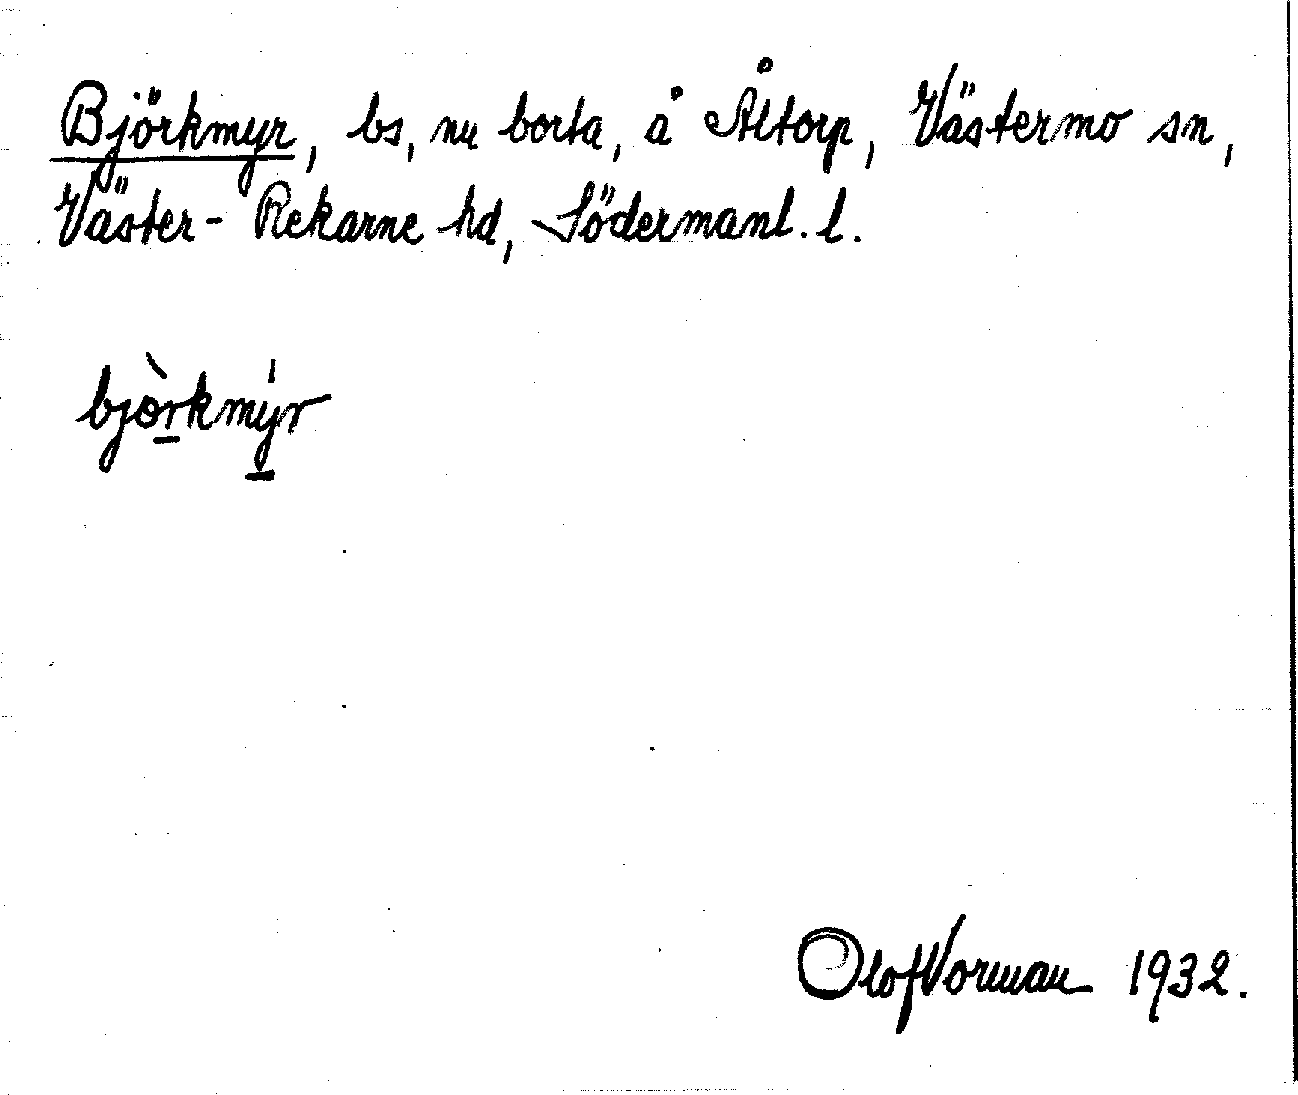 Björkmyr, bs, nu borta, å Åltorp, Västermo sn,
Väster-Rekarne hd, Södermanl. l.
bjòrkmýr
Olof Vorman 1932.